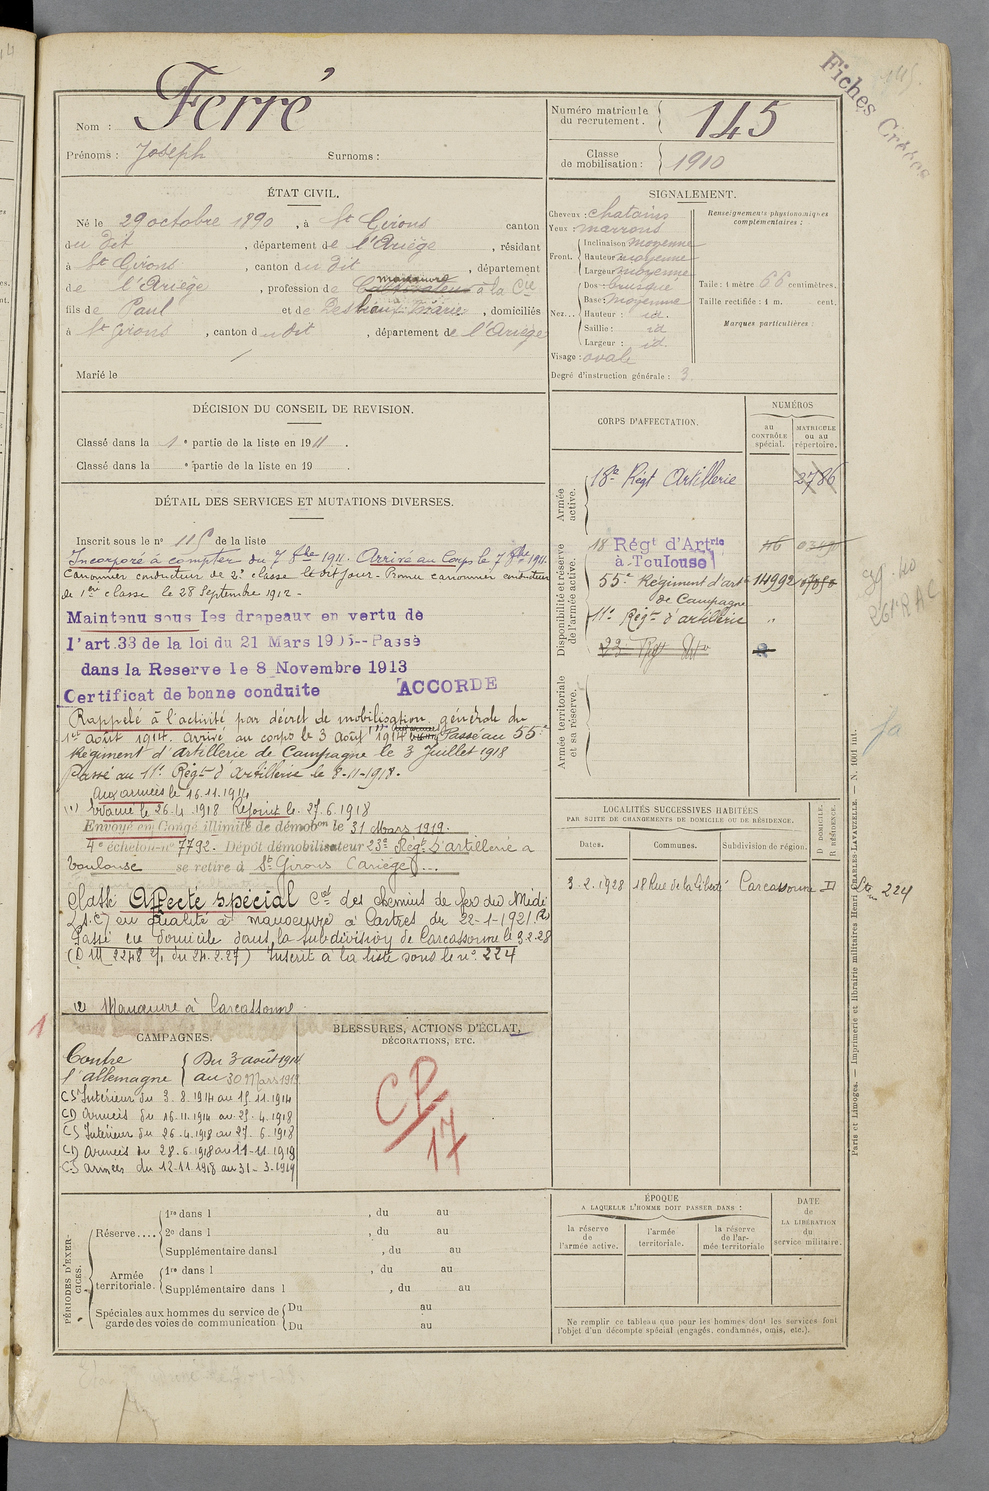 Fiches
145.
Nom : Ferré
Prénoms : Joseph Surnoms :
Numéro matricule du recrutement. 145
Classe de mobilisation : 1910
ÉTAT CIVIL.
Né le 29 octobre 1890, à St Girons canton
du dit, département de l'Ariège, résidant
à St Girons, canton du dit, département
manœuvre
de l'Ariège, profession de Cultivateur à la Cie
fils de Paul et de Marie, domiciliés
à St Girons, canton du dit, département de l'Ariège
Marié le
SIGNALEMENT.
Cheveux : chatains
Yeux : marrons
Front. Inclinaison moyenne
Hauteur moyenne
Largeur moyenne
Nez... Dos busqué
Base : moyenne
Hauteur : id.
Saillie : id
Largeur : id.
Visage : ovale
Degré d'instruction générale : 3.
Renseignements physionomiques complémentaires :
Taille : 1 mètre 66 centimètres.
Taille rectifiée : 1 m. cent.
Marques particulières :
DÉCISION DU CONSEIL DE REVISION.
Classé dans la 1e partie de la liste en 1911.
Classé dans la e partie de la liste en 19
DÉTAIL DES SERVICES ET MUTATIONS DIVERSES.
Inscrit sous le no 115 de la liste
Incorporé à compter du 7 8bre 1911. Arrivé au Corps le 7 8bre 1911.
Canonnier conducteur de 2e classe le dit jour. Bonne canonnier conducteur
de 1ère classe le 28 Septembre 1912 -
Maintenu sous les drapeaux en vertu de
l'art.33 de la loi du 21 Mars 1905--Passé
dans la Reserve le 8 Novembre 1913
Certificat de bonne conduite ACCORDE
Rappelé à l'activité par décret de mobilisation générale du
1er août 1914. Arrivé au corps le 3 Août 1914 (1) Passé au 55e
Régiment d'Artillerie de Campagne le 3 Juillet 1918
Passé au 11e Régt d'Artillerie le 8-11-1918.
Aux armées le 16.11.1914
(1) Evacué le 26.4.1918 Rejoint le 27.6.1918
Envoyé en Congé illimité de démobon le 31 Mars 1919.
4e échelon no 7792. Dépôt démobilisateur 23e Régt d'artillerie à
Toulouse se retire à St Girons (Ariège)...
Classé Affecté spécial Cie des chemins de fer du Midi
(S.C) en qualité de manœuvre à Castres du 22-1-1921 (2)
Passé en domicile dans la subdivision de Carcassonne le 3.2.28
(D M 2248 du 24.2.27) Inscrit à la liste sous le no 224
(2) Manœuvre à Carcassonne
CORPS D'AFFECTATION.
NUMÉROS
au CONTRÔLE spécial.
MATRICULE ou au répertoire.
Armée active.
18e Régt Artillerie 2786
Disponibilité et réserve de l'armée active.
18 Régt d'Artrie à Toulouse
55e Régiment d'arte de Campagne 14992
11e Régt d'artillerie "
Armée territoriale et sa réserve.
LOCALITÉS SUCCESSIVES HABITÉES
PAR SUITE DE CHANGEMENTS DE DOMICILE OU DE RÉSIDENCE.
Dates. Communes. Subdivision de région. D DOMICILE. R RÉSIDENCE.
3.2.1928 18 Rue de la Liberté Carcassonne D
224
CAMPAGNES.
Contre l'allemagne Du 3 août 1914 au 30 Mars 1919.
CS Intérieur du 3.8.1914 au 15.11.1914
CD Armées du 16.11.1914 au 25.4.1918
CS Intérieur du 26.4.1918 au 27-6-1918
CD Armées du 28.6.1918 au 11-11.1918
CS armées du 12.11.1918 au 31-3.1919
BLESSURES, ACTIONS D'ÉCLAT, DÉCORATIONS, ETC.
CP
17
1
PÉRIODES D'EXERCICES.
Réserve....
1re dans l , du au
2e dans l , du au
Supplémentaire dans l , du au
Armée territoriale.
1re dans l , du au
Supplémentaire dans l , du au
Spéciales aux hommes du service de garde des voies de communication
Du au
Du au
ÉPOQUE
A LAQUELLE L'HOMME DOIT PASSER DANS :
la réserve de l'armée active.
l'armée territoriale.
la réserve de l'armée territoriale
DATE DE LA LIBÉRATION du service militaire.
Ne remplir ce tableau que pour les hommes dont les services font
l'objet d'un décompte spécial (engagés, condamnés, omis, etc.).
Paris et Limoges. — Imprimerie et librairie militaires Henri CHARLES-LAVAUZELLE. — N. 1001 int.